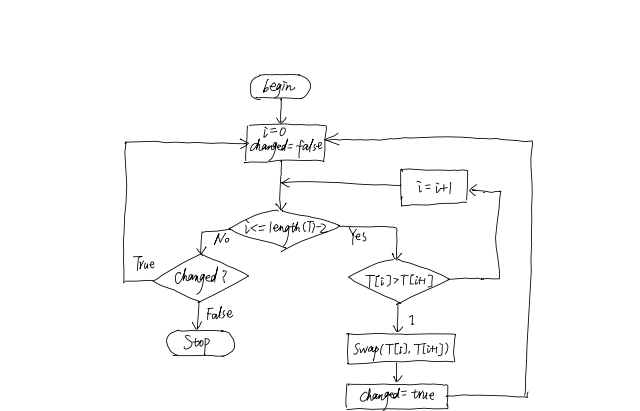 begin
i=0
changed=false
i=i+1
i<=length(T)-2
No
Yes
True
changed?
T[i]>T[i+1]
False
1
Stop
Swap(T[i],T[i+1])
changed=true